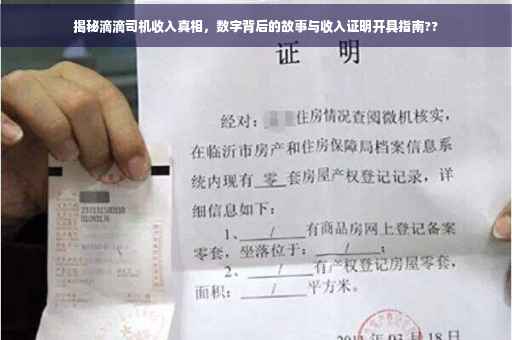 揭秘滴滴司机收入真相，数字背后的故事与收入证明开具指南??
证 明
经对：住房情况查阅微机核实，
在临沂市房产和住房保障局档案信息系
统内现有 零 套房屋产权登记记录，详
细信息如下：
1、 / 有商品房网上登记备案
零套，坐落位于： / ；
2、 / 有产权登记房屋零套，
面积： / 平方米。
03月18日